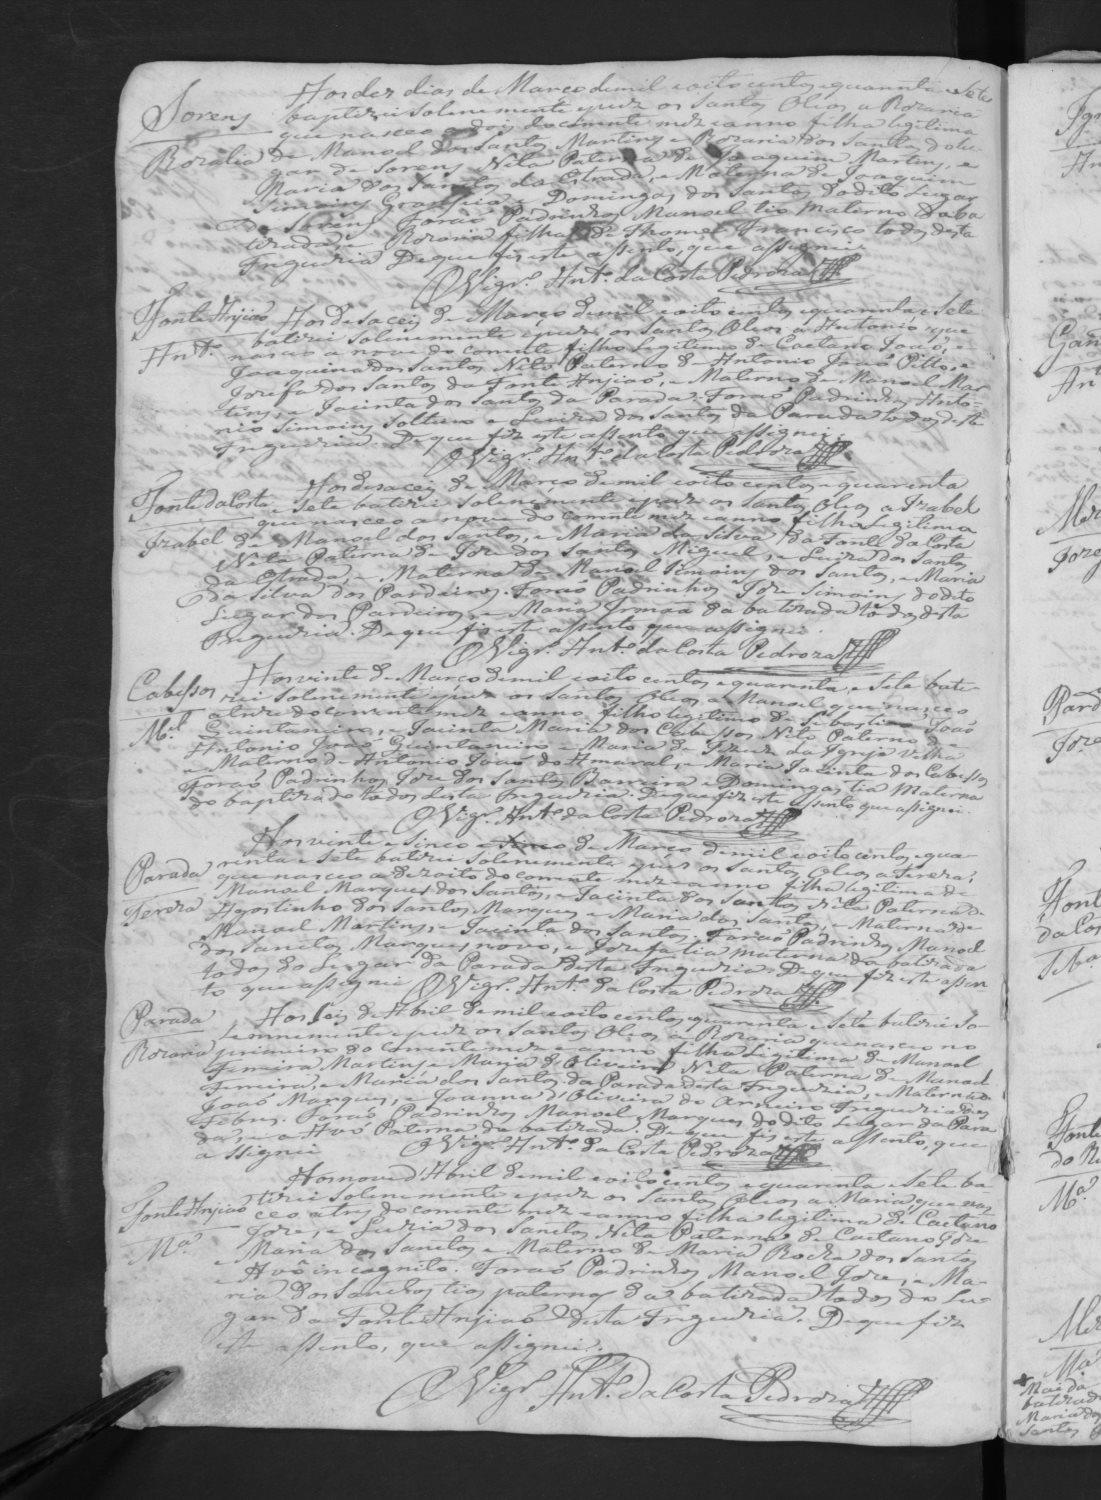 Aos des dias de Março de mil e oito centos e quarenta e Sete
Sorens baptizei solenemente e puz os Santos Oleos a Rozaria
que nasceo a dois do corrente mez e anno filha legitima
Rozalia de Manoel dos Santos Martins e Rozaria dos Santos do lu-
gar de Sorens Neta Paterna de Joaquim Martins, e
Maria dos Santos da Estrada, e Materna de Joaquim
Simoins e Domingas dos Santos do dito Lugar
de Sorens Foraõ Padrinhos Manoel tio materno da ba
tizada, e Rozaria filha de Thomé Francisco todos desta
Freguezia De que fis este assento, que assignei
O Vigr.º Ant.º da Costa Pedroza
Fonte Anjiaõ Aos desaceis de Março de mil e oito centos e quarenta e Sete
batizei solenemente e puz os Santos Oleos a Antonio que
Ant.º nasceo a nove do corrente filho legitimo de Caetano Joaõ, e
Joaquina dos Santos Neto Paterno de Antonio Joaõ Pitto, e
Jozefa dos Santos da Fonte Anjiaõ, e Materno de Manoel Mar-
tins, e Jacinta dos Santos da Parada. Foraõ Padrinhos Anto-
nio Simoins Solteiro e Luiza dos Santos da Parada todos desta
Freguezia De que fiz este assento que assignei
O Vigr.º Ant.º da Costa Pedroza
Aos desaceis de Março de mil e oito centos e quarenta
Fonte da Costa e Sete batizei solenemente e puz os Santos Oleos a Izabel
que nasceo a nove do corrente mez e anno filha Legitima
Izabel de Manoel dos Santos, e Maria da Silva da Fonte da Costa
Neta Paterna de Jozé dos Santos Miguel, e Luiza dos Santos
da Estrada, e Materna de Manoel Simoins dos Santos, e Maria
da Silva dos Pardieiros. Foraõ Padrinhos Joze Simoins do dito
Lugar dos Pardieiros, e Maria Irmaã da batizada todos desta
Freguezia. De que fis este assento que assignei.
O Vigr.º Ant.º da Costa Pedroza
Aos vinte de Março de mil e oito centos e quarenta, e Sete bati-
Cabessos zei solenemente e puz os Santos Oleos a Manoel que nasceo
a treze do corrente mez e anno filho legitimo de Sebastiaõ Joaõ
M.el Quintaneiro, e Jacinta Maria dos Cabessos Neto Paterno de
Antonio Joaõ Quintaneiro e Maria de da Igreja velha
e Materno de Antonio Joaõ do Amaral, e Maria Jacinta dos Cabessos
Foraõ Padrinhos Joze dos Santos Barreira e Domingas tia Materna
do baptizado todos desta Freguezia. De que fiz este assento que assignei.
O Vigr.º Ant.º da Costa Pedroza
Aos vinte e Sinco de Março de mil e oito centos, e qua-
Parada renta e Sete batizei solenemente e puz os Santos Oleos a Tereza,
que nasceo a dezoito do corrente mez e anno filha legitima de
Tereza Manoel Marques dos Santos, e Jacinta dos Santos Neta Paterna de
Agostinho dos Santos Marques e Maria dos Santos, e Materna de
Manoel Martins, e Jacinta dos Santos. Foraõ Padrinhos Manoel
dos Santos Marques novo, e Jozefa tia materna da batizada
todos do Lugar da Parada desta Freguezia. De que fiz este assen-
to que assignei O Vigr.º Ant.º da Costa Pedroza
Parada Aos Seis de Abril de mil e oito centos, e quarenta e Sete batizei so-
lennemente e puz os Santos Oleos a Rozaria que nasceo no
Rozaria primeiro do corrente mez e anno filha Legitima de Manoel
Ferreira Martins, e Maria de Oliveira Neta Paterna de Manoel
Ferreira, e Maria dos Santos da Parada desta Freguezia, e Materna de
Joaõ Marques, e Joanna d'Oliveira de Arneiro Freguezia dos
Febres. Foraõ Padrinhos Manoel Marques do dito Lugar da Para
da, e a Avó Paterna da batizada. De que fis este assento, que
assignei O Vigr.º Ant.º da Costa Pedroza
Aos nove d'Abril de mil e oito centos, e quarenta e Sete ba-
Fonte Anjiaõ tizei solenemente e puz os Santos Oleos a Maria, que nas
ceo a tres do corrente mez e anno filha legitima de Caetano
M.ª Joze, e Luzia dos Santos Neta Paterna de Caetano Joze
e Maria dos Santos e Materno de Maria Rocha dos Santos
e Avô incognito. Foraõ Padrinhos Manoel Joze, e Ma-
ria dos Santos tios paternos da batizada todos do Lu-
gar da Fonte Anjiaõ desta Freguezia. De que fiz
este assento, que assignei.
O Vigr.º Ant.º da Costa Pedroza
Mai da
batizada
Maria dos
Santos